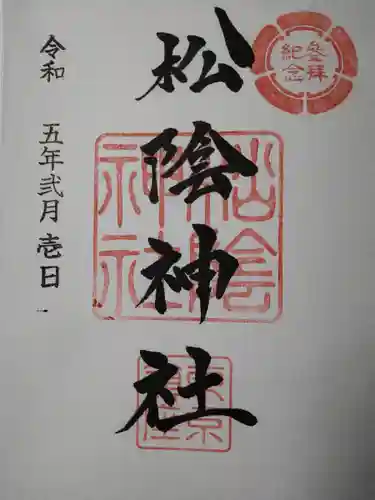 参拝
紀念
松陰神社
松陰
神社
令和 五年弐月壱日
東京